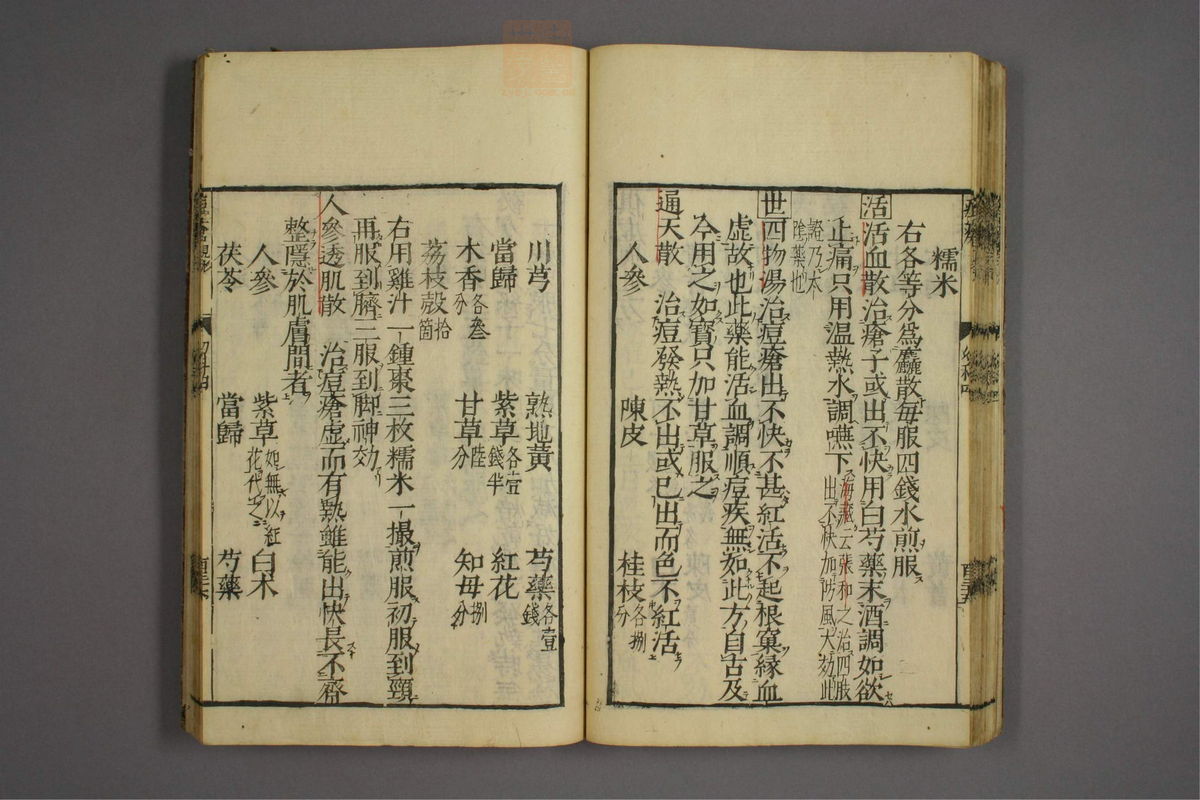 糯米
右各等分爲麤散毎服四錢水煎服
活活血散治瘡子或出不快用白芍藥末酒調如欲
止痛只用温熱水調嚥下海藏云張和之治四肢
出不快加防風大効此
證乃太
陰藥也
世四物湯治痘瘡出不快不甚紅活不起根窠縁血
虚故也此藥能活血調順痘疾無如此方自古及
今用之如寳只加甘草服之
通天散 治痘發熱不出或已出而色不紅活
人參 陳皮 桂枝各捌分
川芎 熟地黄 芍藥各壹錢
當歸 紫草各壹錢半 紅花
木香各叁分 甘草陸分 知母捌分
荔枝殼拾箇
右用雞汁一鍾棗三枚糯米一撮煎服初服到頸
再服到臍三服到脚神効
人參透肌散 治痘瘡虚而有熱雖能出快長不齊
整隱於肌膚間者
人參 紫草如無以紅花代之 白朮
茯苓 當歸 芍藥